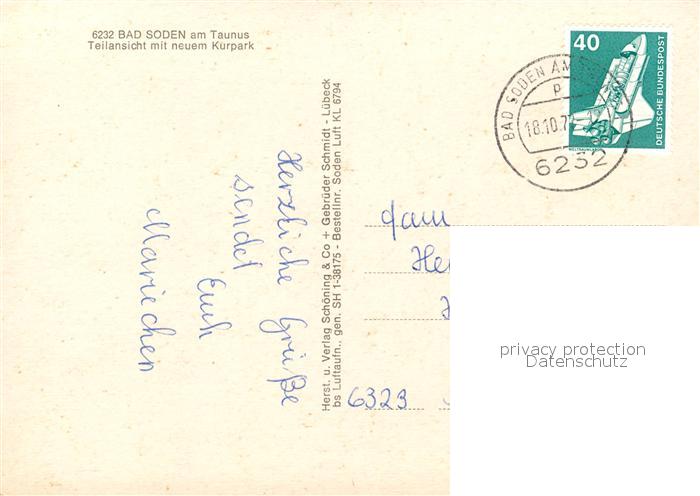 6232 BAD SODEN am Taunus
Teilansicht mit neuem Kurpark
Herzliche Grüße
sendet
Euch
Mariechen
Herst. u. Verlag Schöning & Co + Gebrüder Schmidt - Lübeck
bs Luftaufn., gen. SH 1-38175 - Bestellnr. Soden Luft KL 6794
40
DEUTSCHE BUNDESPOST
WELTRAUMLABOR
BAD SODEN AM
18.10.7
6232
Fam
He
6323
privacy protection
Datenschutz